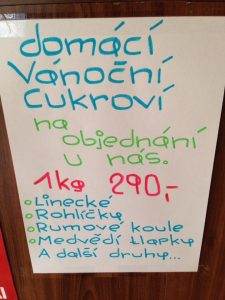 domácí
Vánoční
Cukroví
na
objednání
u nás.
1kg 290,-
Linecké
Rohlíčky
Rumové koule
Medvědí tlapky
A další druhy...